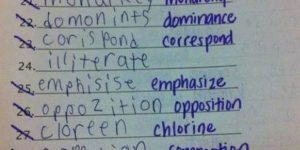 domonints dominance
23. corispond correspond
24. illiterate
25. emphisise emphasize
26. oppozition opposition
27. cloreen chlorine